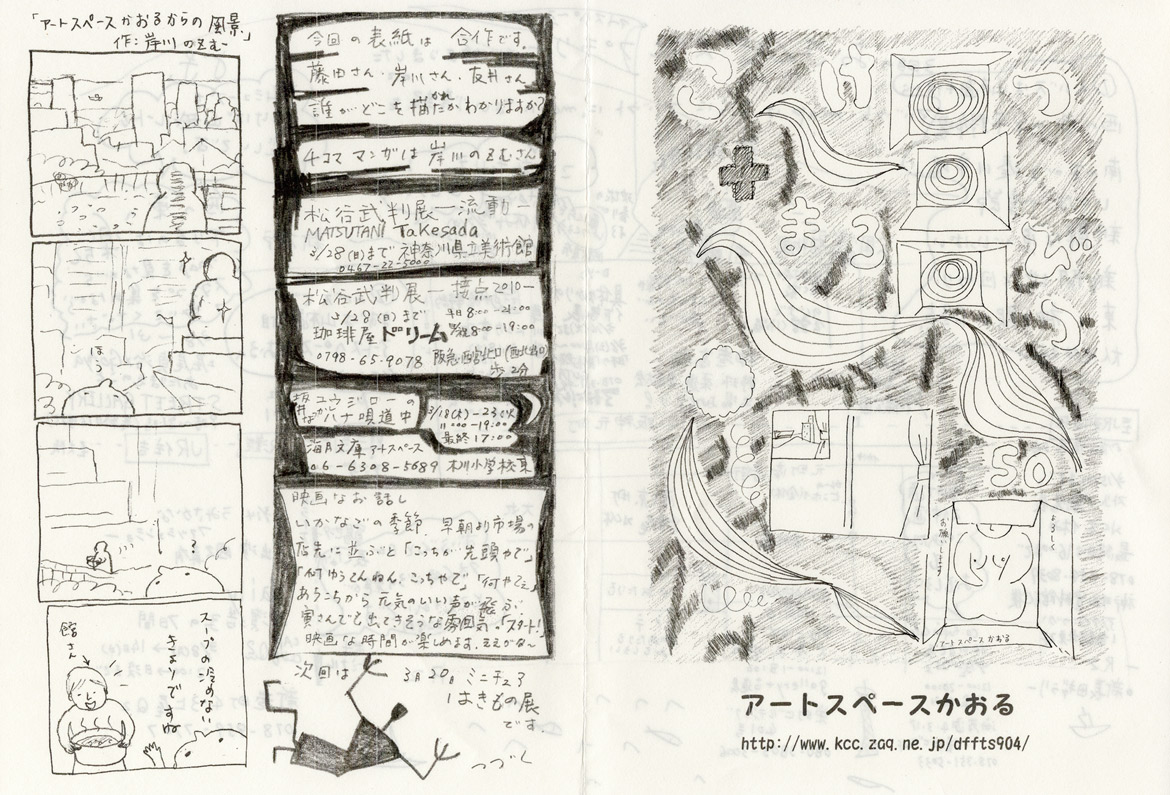 「アートスペースかおるからの風景」
作：岸川のぞむ
ほ
館さん
スープの冷めない
きょりですね
今回の表紙は 合作です。
藤田さん・岸川さん・友井さん
誰がどこを描たかわかりますか?
かれ
4コママンガは岸川のぞむさん
松谷武判展 ー流動ー
MATSUTANI Takesada
3/28(日)まで 神奈川県立美術館
0467-22-5000
松谷武判展 ー 接点2010ー
3/28(日)まで
平日8:00-21:00
珈琲屋ドリーム
8:00-19:00
0798-65-9078 阪急西宮北口
歩2分
ユウジローの
ハナ唄道中
3/18(木)-23(火)
11:00-19:00
最終17:00
海月文庫アートスペース
06-6308-5689 木川小学校東
映画なお話し
いかなごの季節、早朝より市場の
店先に並ぶと「こっちが先頭やで」
「何ゆうてんねん、こっちやで」「何やてぇ」
あちこちから元気のいい声が飛ぶ
寅さんでも出てきそうな雰囲気。「スタート!」
映画な時間が楽しめます。ええがな〜
次回は 3月20日 ミニチュア
はきもの展
です。
つづく
こ け つ
まる
50
よろしく
お願いします
アートスペースかおる
アートスペースかおる
http://www.kcc.zaq.ne.jp/dffts904/